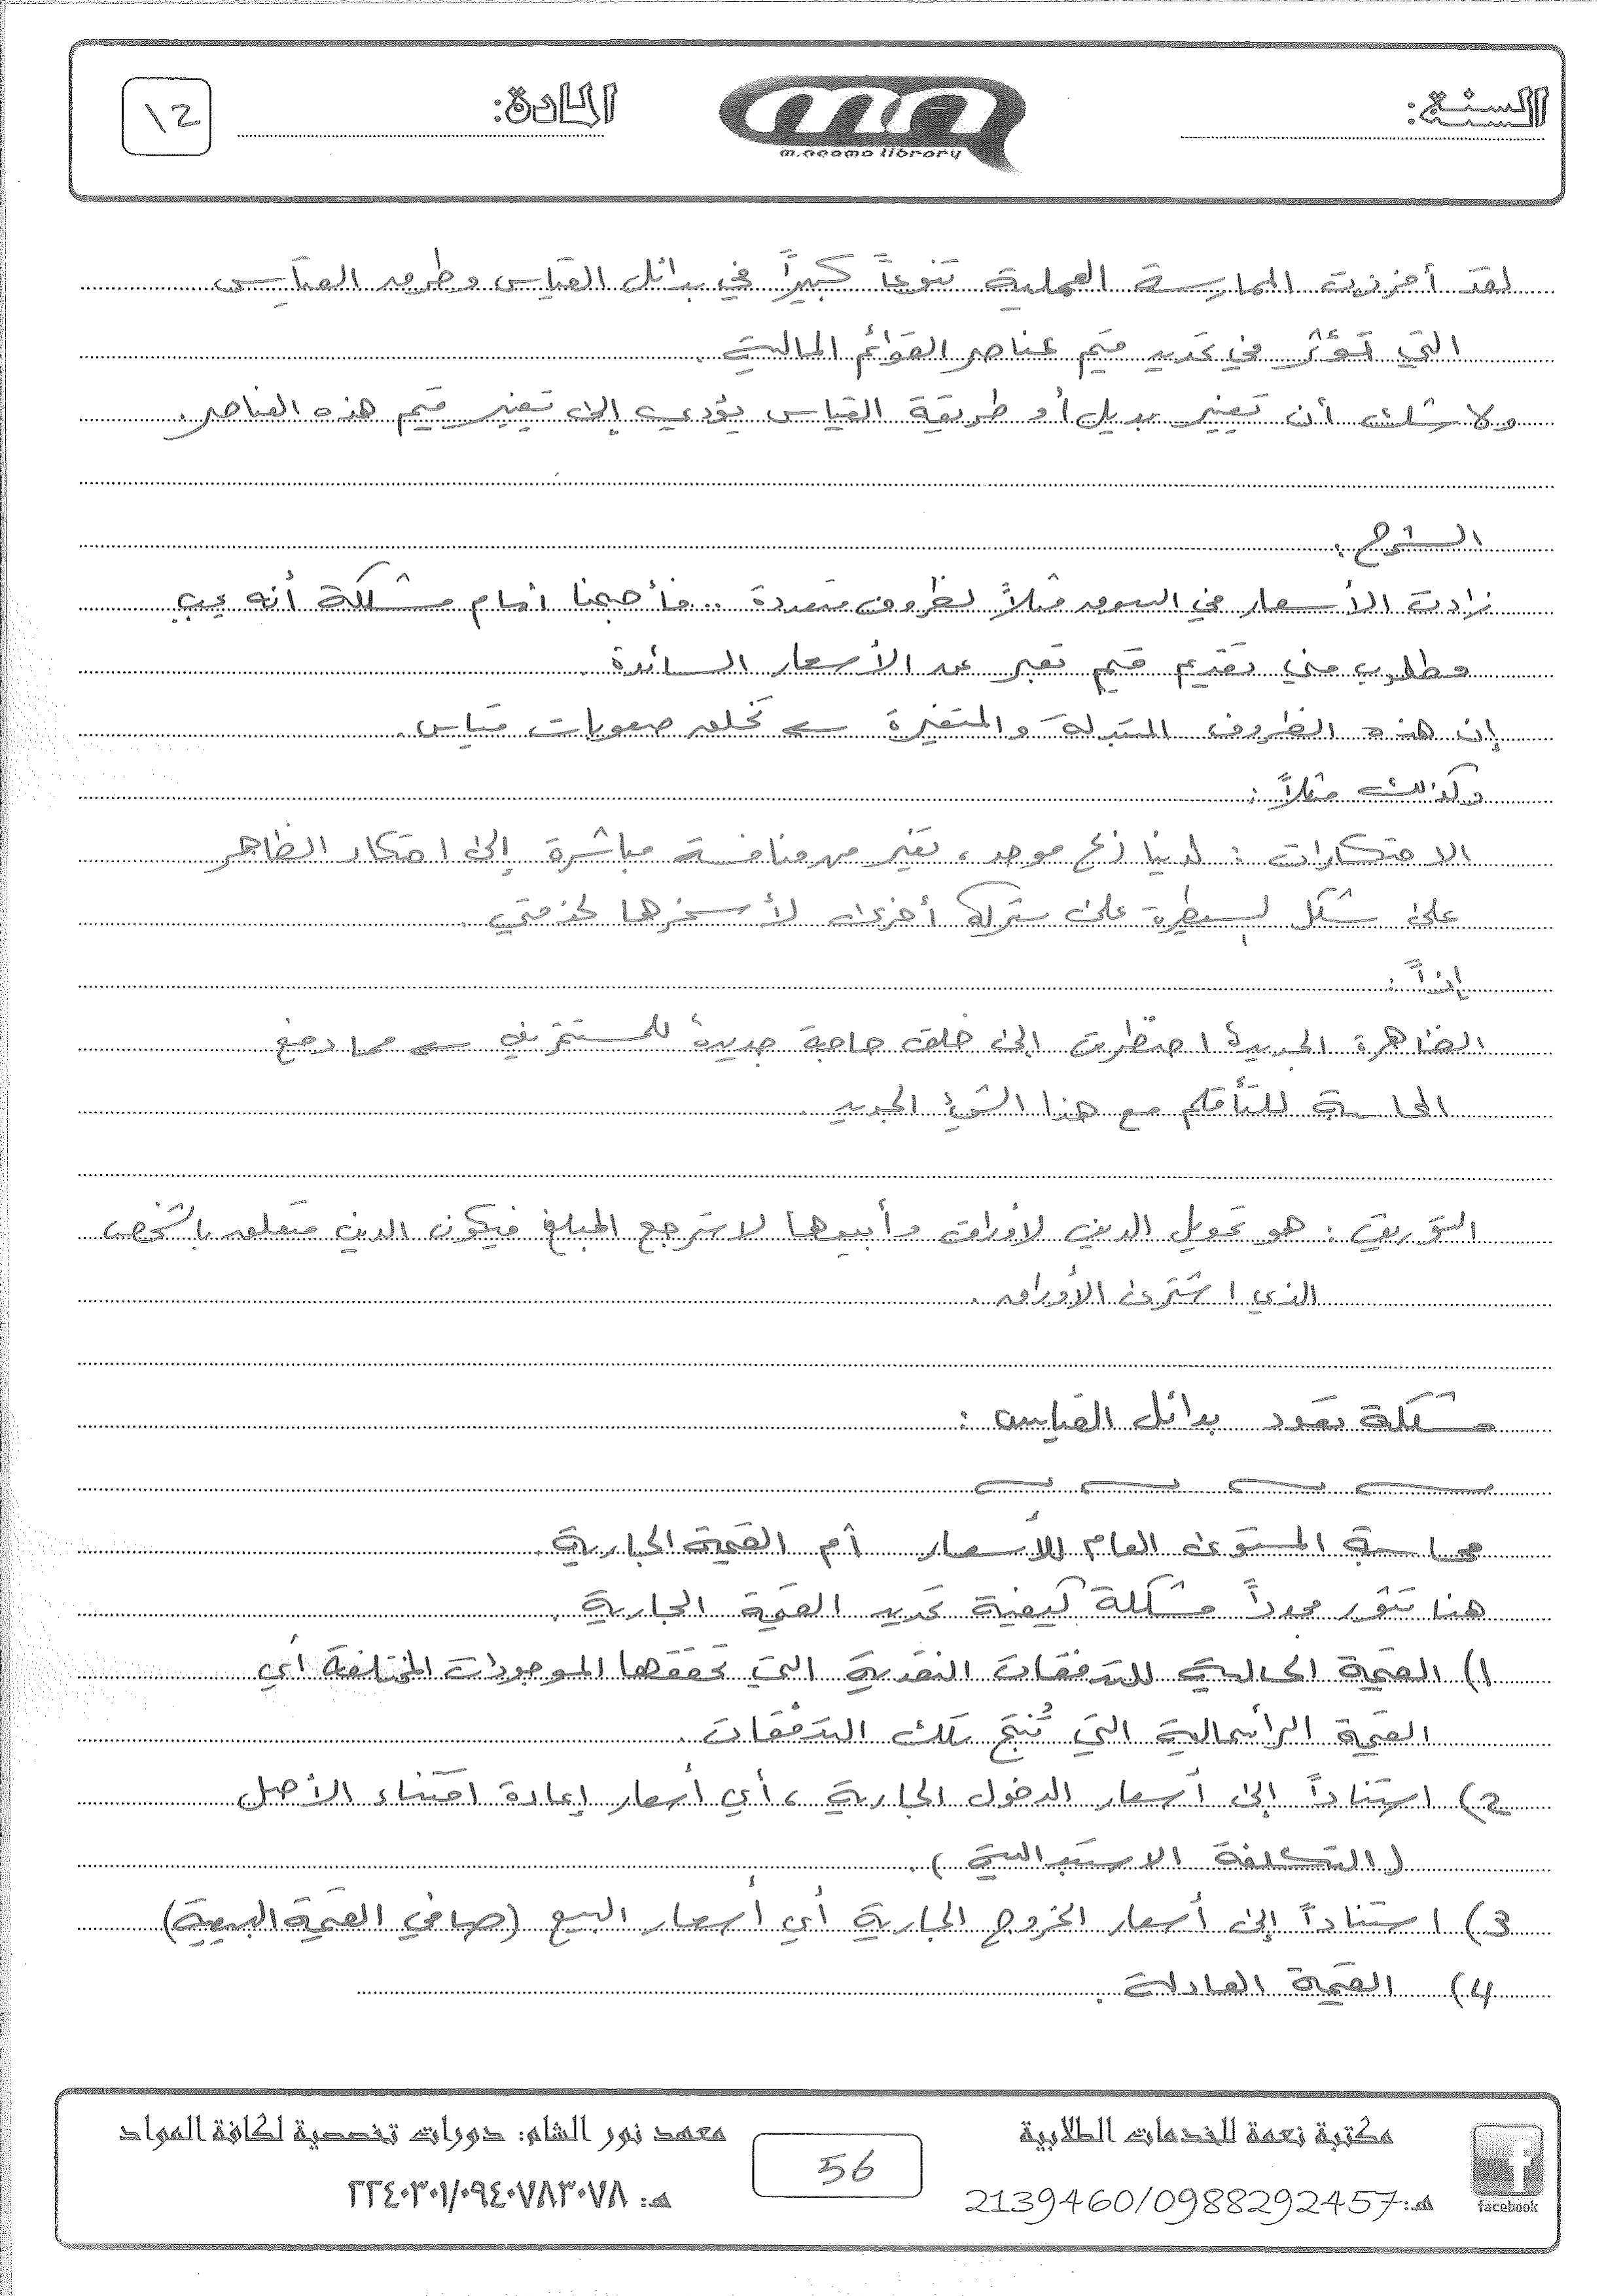 السنة:
المادة:
١٢
m.neama library
لقد أفرزت الممارسة العملية تنوعاً كبيراً في بدائل القياس وطرق القياس
التي تؤثر في تحديد قيم عناصر القوائم المالية .
ولا شك أن تغيير بديل أو طريقة القياس يؤدي إلى تغيير قيم هذه العناصر .
الشرح :
زادت الأسعار في السوق مثلاً لظروف متعددة .. فأصبحنا أمام مشكلة أنه يجب
ومطلوب مني تقديم قيم تعبر عن الأسعار السائدة .
إن هذه الظروف المتبدلة والمتغيرة ← تخلق صعوبات قياس .
وكذلك مثلاً :
الاحتكارات : لدينا زرع موحد ، تغير من منافسة مباشرة إلى احتكار الظاهر
على شكل لسيطرة على شركة أخرى لأسخرها لخدمتي .
إذاً :
الظاهرة الجديدة اضطرت إلى خلق حاجة جديدة للمستثمرين ← مما دفع
المحاسبة للتأقلم مع هذا الشيء الجديد .
التوريق : هو تحويل الدين لأوراق وأبيعها لاسترجع المبلغ فيكون الدين متعلق بالشخص
الذي اشترى الأوراق .
مشكلة تعدد بدائل القياس :
محاسبة المستوى العام للأسعار أم القيمة الجارية .
هنا تثور مجدداً مشكلة كيفية تحديد القيمة الجارية .
1) القيمة الحالية للتدفقات النقدية التي تحققها الموجودات المختلفة أي
القيمة الرأسمالية التي تُنتج تلك التدفقات .
2) استناداً إلى أسعار الدخول الجارية ، أي أسعار إعادة اقتناء الأصل
(التكلفة الاستبدالية ) .
3) استناداً إلى أسعار الخروج الجارية أي أسعار البيع (صافي القيمة البيعية)
4) القيمة العادلة .
مكتبة نعمة للخدمات الطلابية
هـ: 2139460/0988292457
facebook
56
معهد نور الشام: دورات تخصصية لكافة المواد
هـ: ٢٢٤٠٣٠١/٠٩٤٠٧٨٣٠٧٨